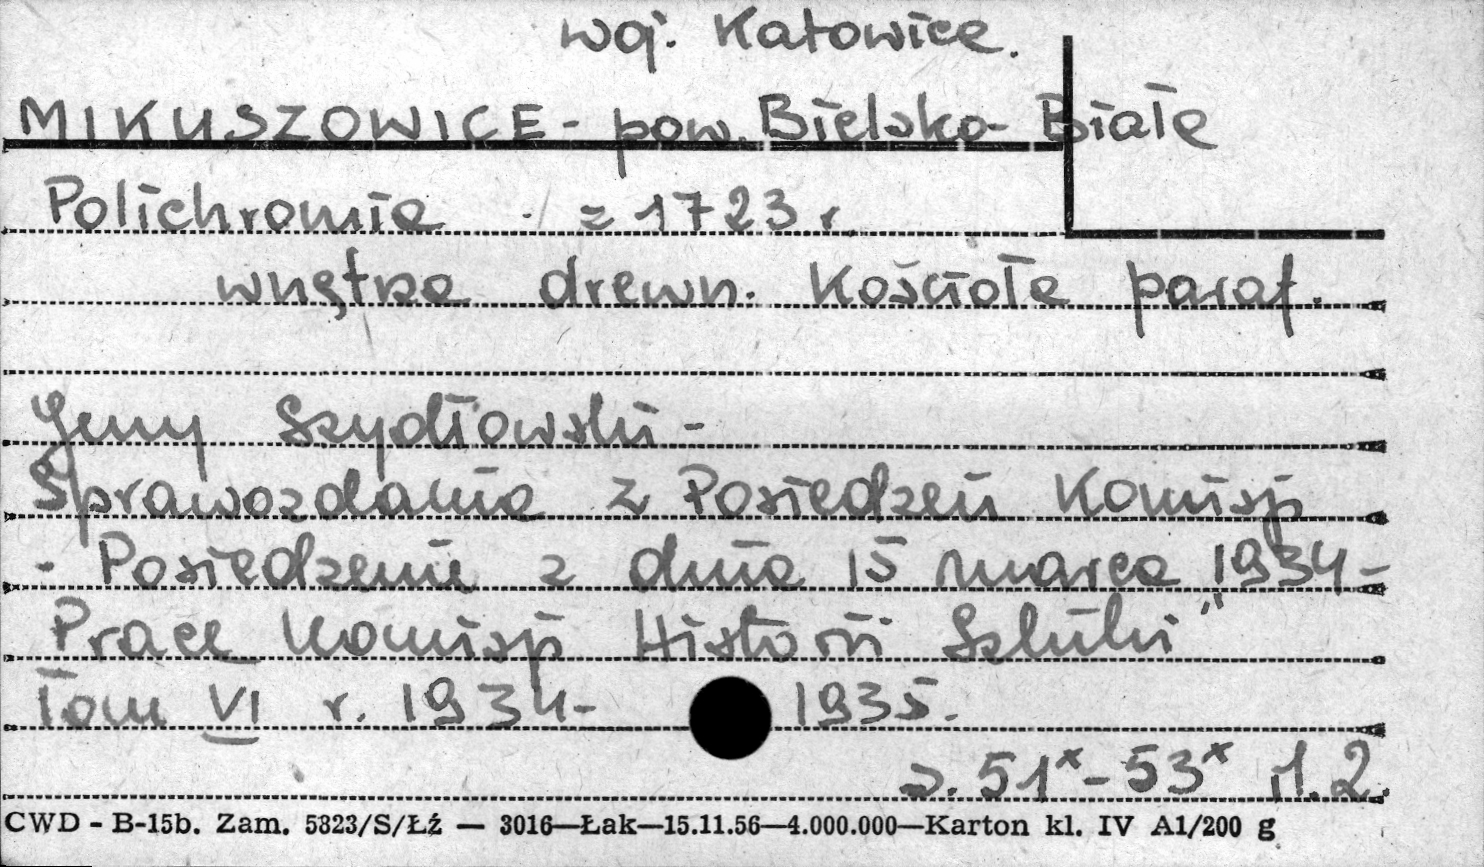 woj. Katowice.
MIKUSZOWICE - pow. Bielsko-Biała
Polichromia z 1723 r.
wnętrza drewn. Kościoła paraf.
Jerzy Szydłowski -
Sprawozdania z Posiedzeń Komisji
- Posiedzenie z dnia 15 marca 1934 -
Prace Komisji Historii Sztuki"
Tom VI r. 1934 - 1935.
s. 51ˣ - 53ˣ il. 2.
CWD - B-15b. Zam. 5823/S/Łź — 3016—Łak—15.11.56—4.000.000—Karton kl. IV A1/200 g